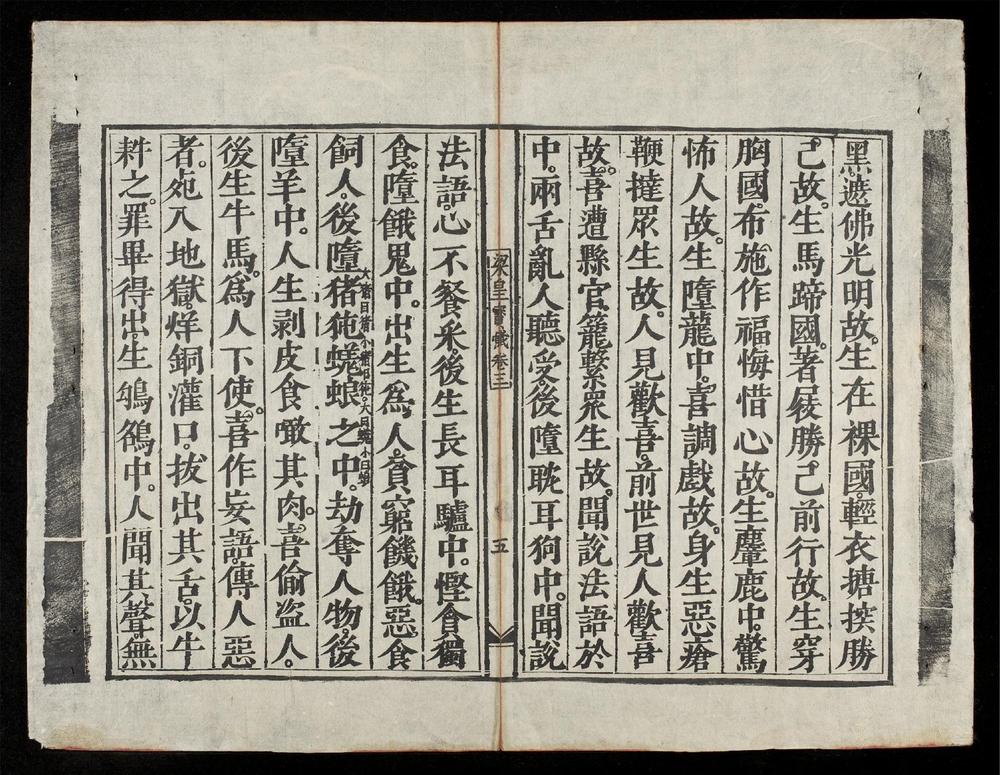 黑遮佛光明故。生在裸國。輕衣搪揬勝
己故。生馬蹄國。著屐勝己前行故。生穿
胸國。布施作福悔惜心故。生麞鹿中。驚
怖人故。生墮龍中。喜調戲故。身生惡瘡
鞭撻眾生故。人見歡喜前世見人歡喜
故。喜遭縣官籠繫眾生故。聞說法語於
中。兩舌亂人聽受。後墮耽耳狗中。聞說
梁皇寶懺卷三
五
法語。心不餐采。後生長耳驢中。慳貪獨
食。墮餓鬼中。出生為人。貧窮饑餓。惡食
飼人。後墮猪㹠蜣蜋之中。劫奪人物。後
墮羊中。人生剥皮食噉其肉。喜偷盗人。
後生牛馬。為人下使。喜作妄語。傳人惡
者。死入地獄。烊銅灌口。拔出其舌。以牛
耕之。罪畢得出。生鴝鵒中。人聞其聲。無